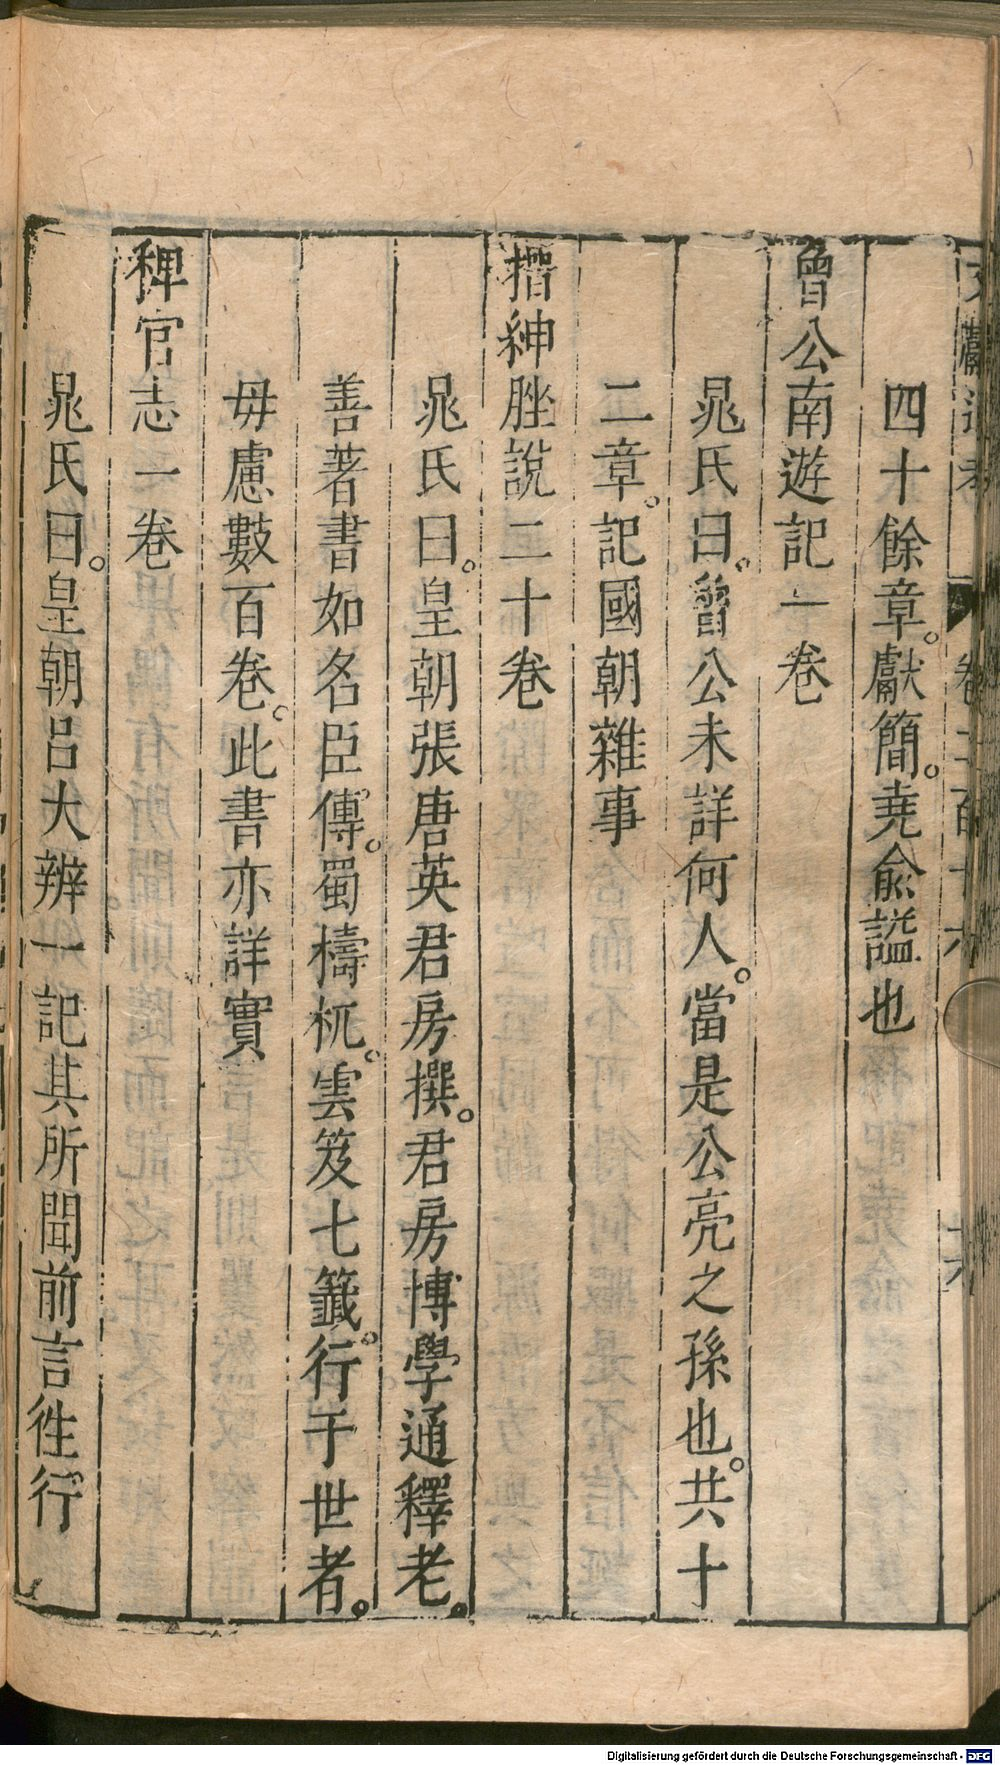 文獻通考 卷二百十六 十六
四十餘章。獻簡。堯俞謚也
魯公南遊記一卷
晁氏曰。曾公未詳何人。當是公亮之孫也。共十
二章。記國朝雜事
搢紳脞說二十卷
晁氏曰。皇朝張唐英君房撰。君房博學通釋老。
善著書如名臣傳。蜀檮杌。雲笈七籤。行于世者。
毋慮數百卷。此書亦詳實
稗官志一卷
晁氏曰。皇朝呂大辨一記其所聞前言徃行
Digitalisierung gefördert durch die Deutsche Forschungsgemeinschaft - DFG